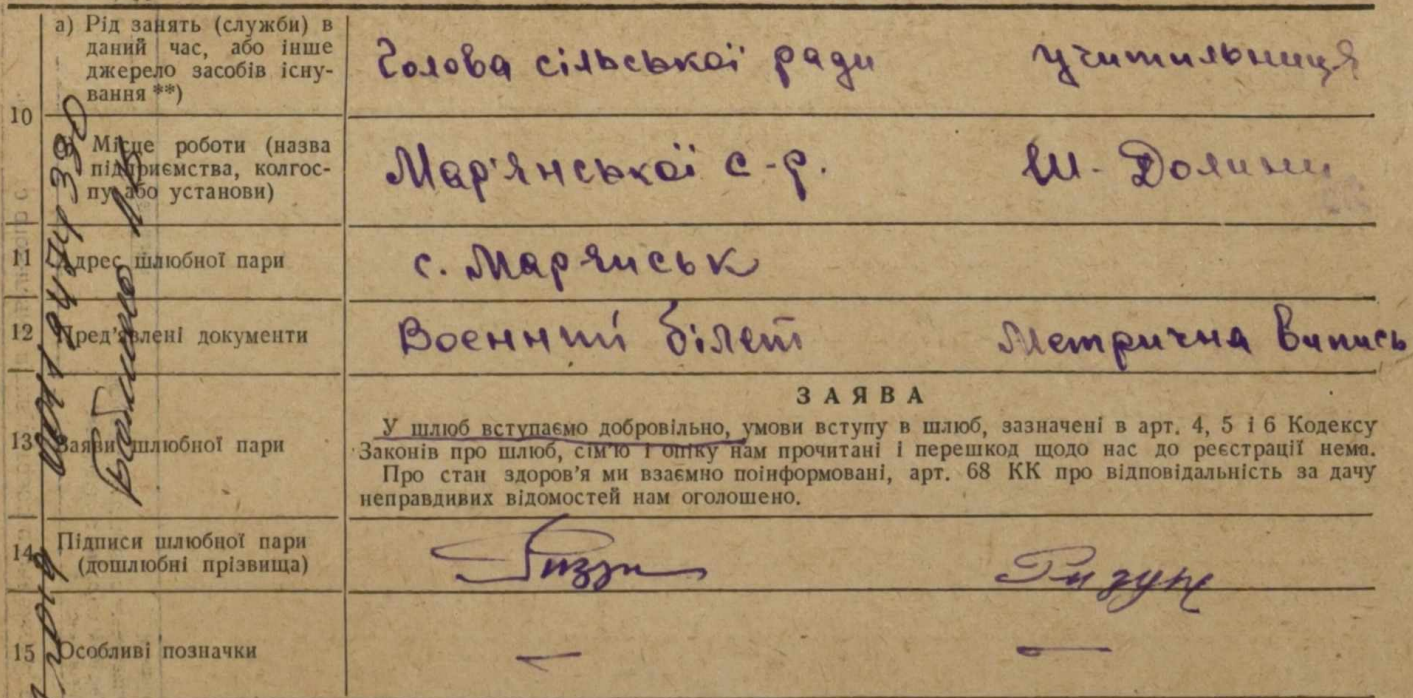 а) Рід занять (служби) в
даний час, або інше
джерело засобів існу-
вання **)
Голова сільської ради учитильниця
10
Місце роботи (назва
підприємства, колгос-
пу або установи)
Мар'янської с-р. Ш- Долини
11 Адрес шлюбної пари
с. Марянськ
12 Пред'явлені документи
Воєнний білет Метрична Випись
13 Заяви шлюбної пари
ЗАЯВА
У шлюб вступаємо добровільно, умови вступу в шлюб, зазначені в арт. 4, 5 і 6 Кодексу
Законів про шлюб, сім'ю і опіку нам прочитані і перешкод щодо нас до реєстрації нема.
Про стан здоров'я ми взаємно поінформовані, арт. 68 КК про відповідальність за дачу
неправдивих відомостей нам оголошено.
14 Підписи шлюбної пари
(дошлюбні прізвища)
15 Особливі позначки